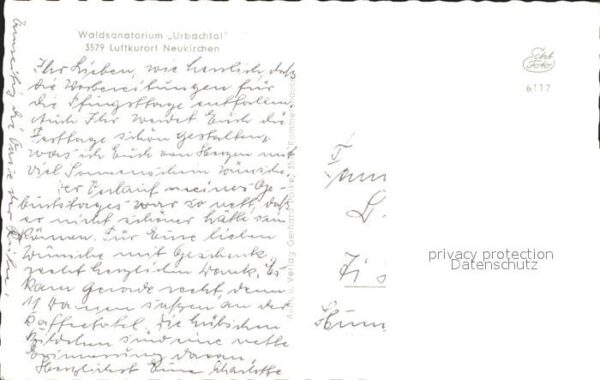 Waldsanatorium „Urbachtal"
3579 Luftkurort Neukirchen
Echt Foto
6117
Ihr Lieben, wie herrlich, daß
die Vorbereitungen für
die Pfingsttage entfallen.
Auch Ihr werdet Euch die
Festtage schön gestalten,
was ich Euch von Herzen mit
viel Sonnenschein wünsche.
Der Verlauf meines Ge-
burtstages war so nett, daß
er nicht schöner hätte sein
können. Für Eure lieben
Wünsche mit Geschenk
recht herzlichen Dank. Es
kam gerade recht, denn
11 Damen saßen an der
Kaffeetafel. Die hübschen
Bildchen sind eine nette
Erinnerung daran.
Herzlichst Eure Charlotte
Verlag Gerhard
Fam
privacy protection
Datenschutz